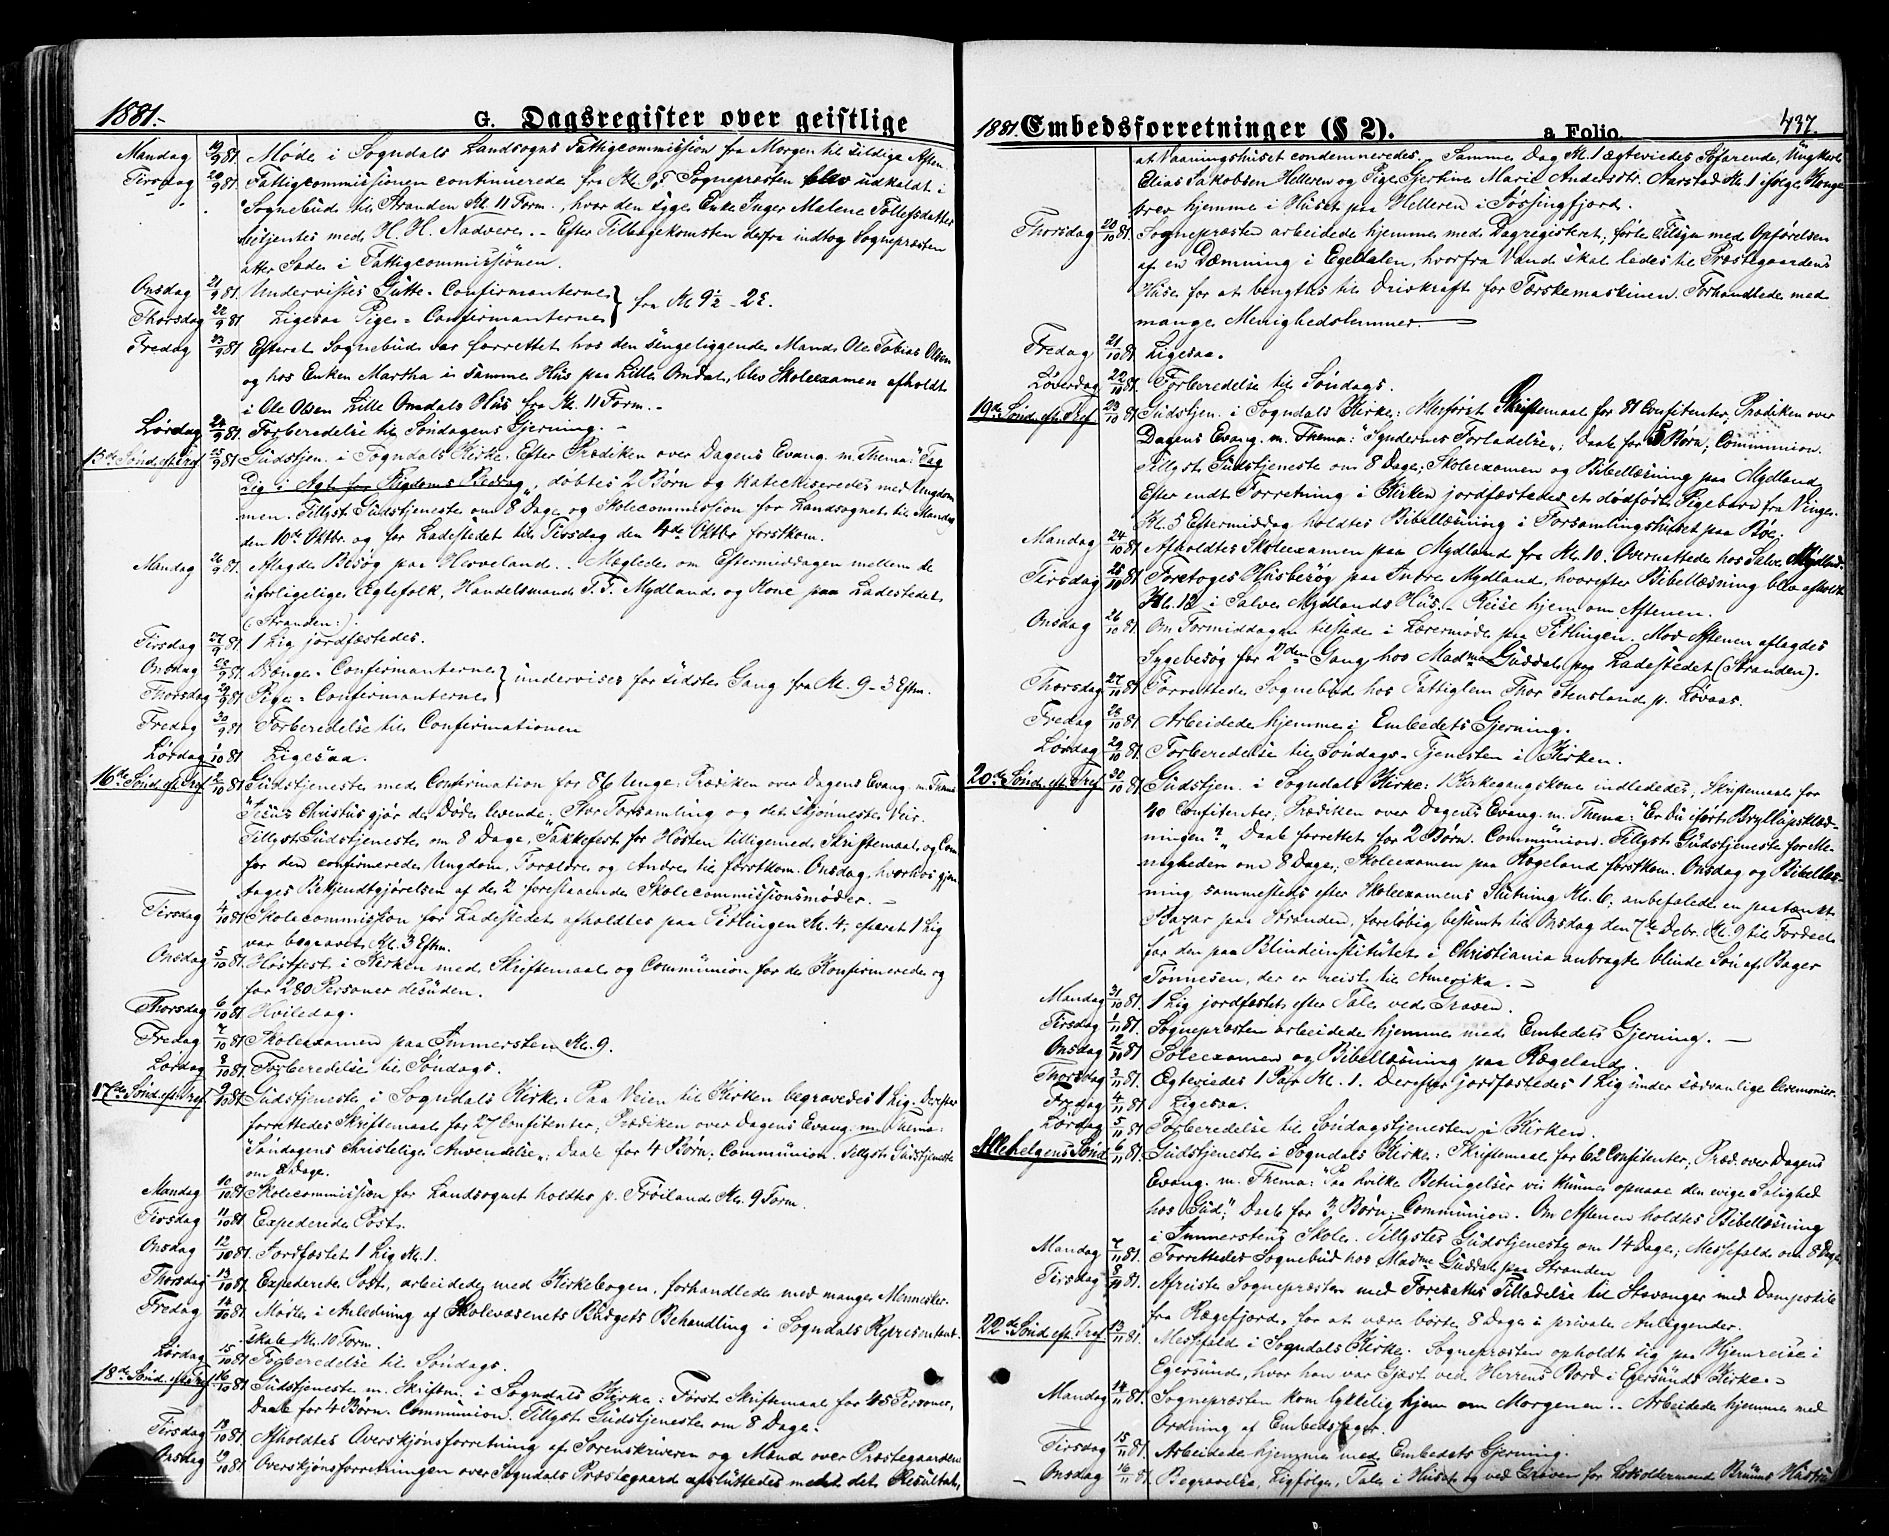 1881.
G. Dagsregister over geistlige
Mandag 19/9 81. Møde i Sogndals Landsogns Fattigcommission fra Morgen til sildige Aften.
Tirsdag 20/9 81. Fattigcommissionen continuerede fra Kl. 9; Sognepræsten blev udkaldt i
Sognebud til Stranden Kl. 11 Form., hvor den syge Enke Inger Malene Tollefsdatter
betjentes med H. H. Nadvere. - Efter Tilbagekomsten derfra indtog Sognepræsten
atter Sæde i Fattigcommissionen.
Onsdag 21/9 81. Undervistes Gutte-Confirmanterne } fra Kl. 9½ - 2
Thorsdag 22/9 81. Ligesaa Pige-Confirmanterne
Fredag 23/9 81. Efterat Sognebud var forrettet hos den sengeliggende Mand Ole Tobias Olsen
og hos Enken Martha i samme Hus paa Lille Omdal, blev Skoleexamen afholdt
i Ole Olsen Lille Omdals Hus fra Kl. 11 Form. -
Lørdag 24/9 81. Forberedelse til Søndagens Gjerning. -
15de Sønd. eft. Tref. 25/9 81. Gudstjen. i Sogndals Kirke. Efter Prædiken over Dagens Evang. m. Thema: "Tag
Dig i Agt for Rigdoms Bedrag", døbtes 2 Børn og katechiseredes med Ungdom
men. Tillyst Gudstjeneste om 8 Dage og Skolecommission for Landsognet til Mandag
den 10de Oktbr. og for Ladestedet til Tirsdag den 4de Oktbr. førstkom.
Mandag 26/9 81. Aflagde Besøg paa Herveland. Mæglede om Eftermiddagen mellem de
uforligelige Ægtefolk, Handelsmand T. T. Mydland og Kone paa Ladestedet
(Stranden:).
Tirsdag 27/9 81. 1 Lig jordfæstedes.
Onsdag 28/9 81. Drenge-Confirmanterne } undervises for sidste Gang fra Kl. 9 - 3 Eftm.
Thorsdag 29/9 81. Pige-Confirmanterne
Fredag 30/9 81. Forberedelse til Confirmationen
Lørdag 1/10 81. Ligesaa.
16de Sønd. eft. Tref. 2/10 81. Gudstjeneste med Confirmation for 86 Unge. Prædiken over Dagens Evang. m. Thema
"Jesus Christus gjør de Døde levende; Stor Forsamling og det skjønneste Veir.
Tillyst Gudstjeneste om 8 Dage, "Takkefest for Høsten tilligemed Skriftemaal og Com
for den confirmerede Ungdom, Forældre og Andre til førstkom. Onsdag, hvorhos gjen
toges Bekjendtgjørelsen af de 2 forestaaende Skolecommissionsmøder. -
Tirsdag 4/10 81. Skolecommission for Ladestedet afholdtes paa Sætlingen Kl. 4, efterat 1 Lig
var begravet Kl. 3 Eftm.
Onsdag 5/10 81. Høstfest i Kirken med Skriftemaal og Communion for de Konfirmerede og
for 280 Personer desuden.
Thorsdag 6/10 81. Hviledag.
Fredag 7/10 81. Skoleexamen paa Immersten Kl. 9.
Lørdag 8/10 81. Forberedelse til Søndags.
17de Sønd. eft. Tref. 9/10 81. Gudstjeneste i Sogndals Kirke. Paa Veien til Kirken begravedes 1 Lig. Derefter
forrettedes Skriftemaal for 27 Confitenter; Prædiken over Dagens Evang. m. Thema:
"Søndagens christelige Anvendelse"; Daab for 4 Børn; Communion. Tillyst Gudstjeneste
om 8 Dage.
Mandag 10/10 81. Skolecommission for Landsognet holdtes p. Frøiland Kl. 9 Form.
Tirsdag 11/10 81. Expederede Post.
Onsdag 12/10 81. Jordfæstet 1 Lig Kl. 1.
Thorsdag 13/10 81. Expederede Post, arbeidede med Kirkebogen, forhandlede med mange Mennesker.
Fredag 14/10 81. Mødte i Anledning af Skolevæsenets Budgets Behandling i Sogndals Repræsentant-
skab Kl. 10 Form.
Lørdag 15/10 81. Forberedelse til Søndags.
18de Sønd. eft. Tref. 16/10 81. Gudstjeneste m. Skriftem. i Sogndals Kirke: Først Skriftemaal for 45 Personer,
Daab for 4 Børn. Communion. Tillyst Gudstjeneste om 8 Dage.
Tirsdag 18/10 81. Afholdtes Overskjønsforretning af Sorenskriveren og Mænd over Præstegaarden
Onsdag 19/10 81. Overskjønsforretningen over Sogndals Præstegaard afsluttedes med det Resultat,
1881. Embedsforretninger (§ 2).
a Folio
437.
at Vaaningshuset condemneredes. Samme Dag Kl. 1 ægteviedes Søfarende, Ungkarl
Elias Jakobsen Helleren og Pige Gjertine Marie Andersdtr. Aarstad Kl. 1 ifølge Konge
brev hjemme i Huset paa Helleren i Jøssingfjord.
Thorsdag 20/10 81. Sognepræsten arbeidede hjemme med Dagregistret; førte Tilsyn med Opførelsen
af en Dæmning i Egedalen, hvorfra Vand skal ledes til Præstegaardens
Huse for at benyttes til Drivkraft for Tærskemaskinen. Forhandlede med
mange Menighedslemmer.
Fredag 21/10 81. Ligesaa.
Løverdag 22/10 81. Forberedelse til Søndags.
19de Sønd. eft. Tref. 23/10 81. Gudstjen. i Sogndals Kirke: Allerførst Skriftemaal for 81 Confitenter, Prædiken over
Dagens Evang. m. Thema: "Syndernes Forladelse"; Daab for 5 Børn; Communion.
Tillyst Gudstjeneste om 8 Dage; Skoleexamen og Bibellæsning paa Mydland.
Efter endt Forretning i Kirken jordfæstedes et dødfødt Pigebarn fra Vinge.
Kl. 5 Eftermiddag holdtes Bibellæsning i Forsamlingshuset paa Bøe;
Mandag 24/10 81. Afholdtes Skoleexamen paa Mydland fra Kl. 10. Overnattede hos Salve Mydland.
Tirsdag 25/10 81. Foretoges Husbesøg paa Indre Mydland, hvorefter Bibellæsning blev afholdt
Kl. 12 i Salve Mydlands Hus. - Reise hjem om Aftenen.
Onsdag 26/10 81. Om Formiddagen tilstede i Lærermøde paa Sætlingen. Mod Aftenen aflagdes
Sygebesøg for 2den Gang hos Madme Guddal paa Ladestedet (Stranden).
Thorsdag 27/10 81. Forrettedes Sognebud hos Fattiglem Thor Stensland p. Løvaas.
Fredag 28/10 81. Arbeidede hjemme i Embedets Gjerning.
Lørdag 29/10 81. Forberedelse til Søndags-Tjenesten i Kirken.
20de Sønd. eft. Tref. 30/10 81. Gudstjen. i Sogndals Kirke: 1 Kirkegangskone indlededes, Skriftemaal for
40 Confitenter, Prædiken over Dagens Evang. m. Thema: "Er Du iført Bryllupsklæd-
ningen?" Daab forrettet for 2 Børn. Communion. Tillyst Gudstjeneste for Me-
nigheden om 8 Dage; Skoleexamen paa Rægeland førstkom. Onsdag og Bibellæs-
ning sammesteds efter Skoleexamens Slutning Kl. 6; anbefalede en paatænkt
Bazar paa Stranden, foreløbig bestemt til Onsdag den 7de Debr. Kl. 9 til Fordeel
for den paa Blindeinstitutet i Christiania anbragte blinde Søn af Bager
Tønnesen, der er reist til Amerika. -
Mandag 31/10 81. 1 Lig jordfæstet efter Tale ved Graven.
Tirsdag 1/11 81. Sognepræsten arbeidede hjemme med Embedets Gjerning. -
Onsdag 2/11 81. Soleexamen og Bibellæsning paa Rægeland.
Thorsdag 3/11 81. Ægteviedes 1 Par Kl. 1. Derefter jordfæstedes 1 Lig under sædvanlige Ceremonier.
Fredag 4/11 81. Ligesaa.
Lørdag 5/11 81. Forberedelse til Søndagstjenesten i Kirken.
Allehelgens Sønd. 6/11 81. Gudstjeneste i Sogndals Kirke: Skriftemaal for 62 Confitenter; Præd. over Dagens
Evang. m. Thema: "Paa hvilke Betingelser vi kunne opnaae den evige Salighed
hos Gud"; Daab for 3 Børn; Communion. Om Aftenen holdtes Bibellæsning
i Immerstens Skole. Tillystes Gudstjeneste om 14 Dage; Messefald om 8 Dage
Mandag 7/11 81. Forrettedes Sognebud hos Madme Guddal paa Stranden
Tirsdag 8/11 81. Afreiste Sognepræsten med Foresattes Tilladelse til Stavanger med Dampskib
fra Rægefjord, for at være borte 8 Dage i private Anliggender.
22de Sønd. eft. Tref. 13/11 81. Messefald i Sogndals Kirke. Sognepræsten opholdt sig paa Hjemreise i
Egersund, hvor han var Gjæst ved Herrens Bord i Egersunds Kirke. -
Mandag 14/11 81. Sognepræsten kom lykkelig hjem om Morgenen. Arbeidede hjemme med
Ordning af Embedssager.
Tirsdag 15/11 81. Arbeidede hjemme med Embedets Gjerning.
Onsdag 16/11 81. Begravelse, Ligfølge, Tale i Huset og ved Graven for Lodsoldermand Bruuns Hustru